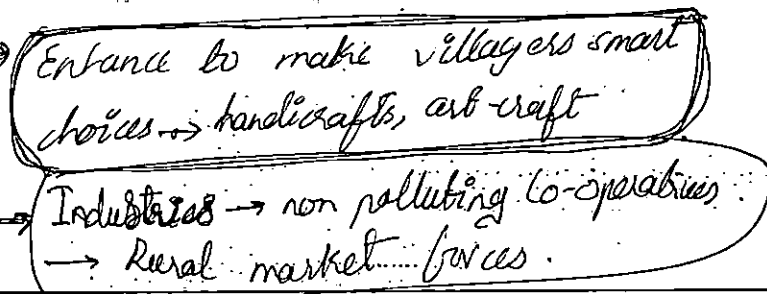 Enhance to make villagers smart
choices → handicrafts, art-craft
→ Industries → non polluting Co-operatives
→ Rural market forces.